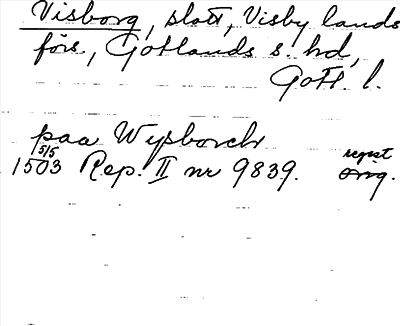 Visborg, slott, Visby lands
förs., Gotlands s. hd,
Gotl. l.
paa Wysborch
5/5
1503 Rep. II nr 9839. regist
orig.